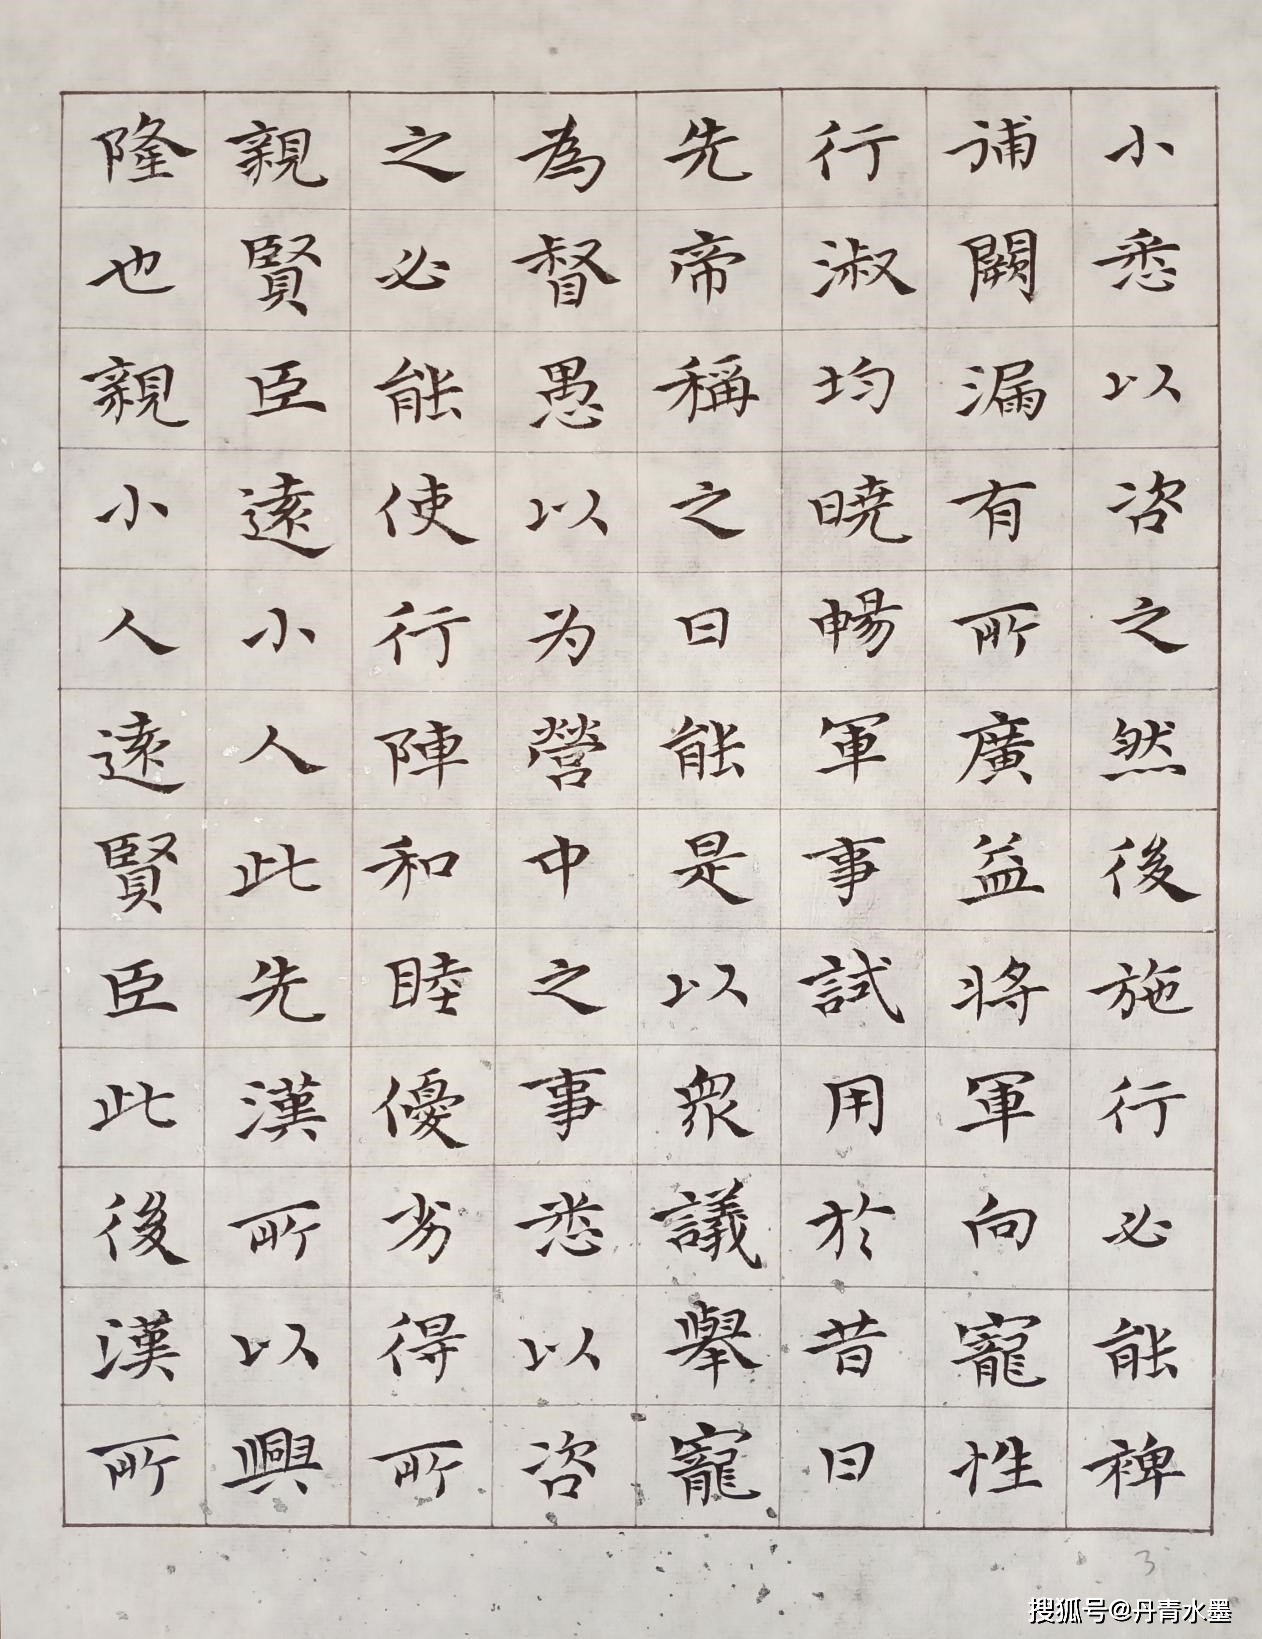 小悉以咨之然後施行必能裨
補闕漏有所廣益將軍向寵性
行淑均曉暢軍事試用於昔日
先帝稱之曰能是以衆議舉寵
為督愚以为營中之事悉以咨
之必能使行陣和睦優劣得所
親賢臣遠小人此先漢所以興
隆也親小人遠賢臣此後漢所
3
搜狐号@丹青水墨